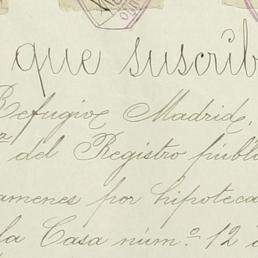 que suscrib
Refugio Madrid,
del Registro públi
menes por hipoteca
la Casa núm.º 12